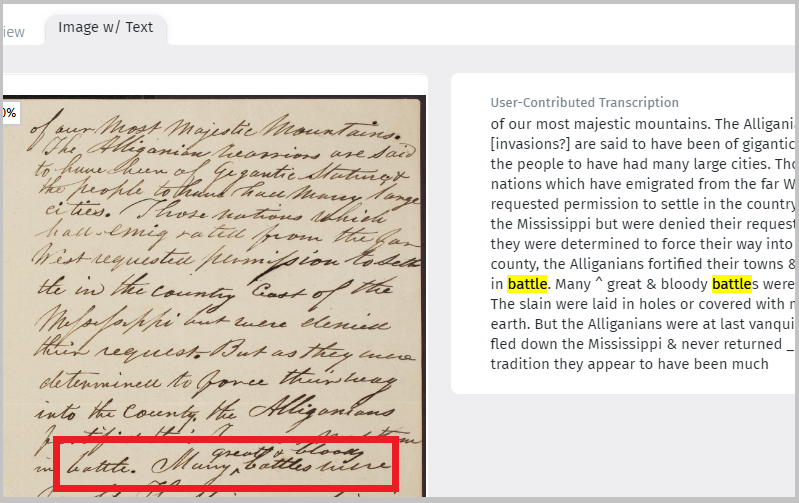 iew
Image w/ Text
0%
of our most Majestic Mountains.
The Alliganian warriors are said
to have been of Gigantic Stature &
the people to have had many large
cities. Those nations which
had emigrated from the far
West requested permission to sett
tle in the country East of the
Mississippi but were denied
their request. But as they were
determined to force their way
into the County, the Alliganians
in battle. Many ^ great & bloody battles were
User-Contributed Transcription
of our most majestic mountains. The Alligani
[invasions?] are said to have been of gigantic
the people to have had many large cities. Tho
nations which have emigrated from the far W
requested permission to settle in the country
the Mississippi but were denied their request
they were determined to force their way into
county, the Alliganians fortified their towns &
in battle. Many ^ great & bloody battles were
The slain were laid in holes or covered with r
earth. But the Alliganians were at last vanqui
fled down the Mississippi & never returned _
tradition they appear to have been much